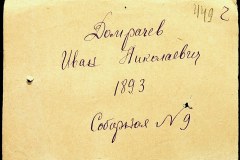 449 2
Домрачев
Иван Николаевич
1893
Соборная №9